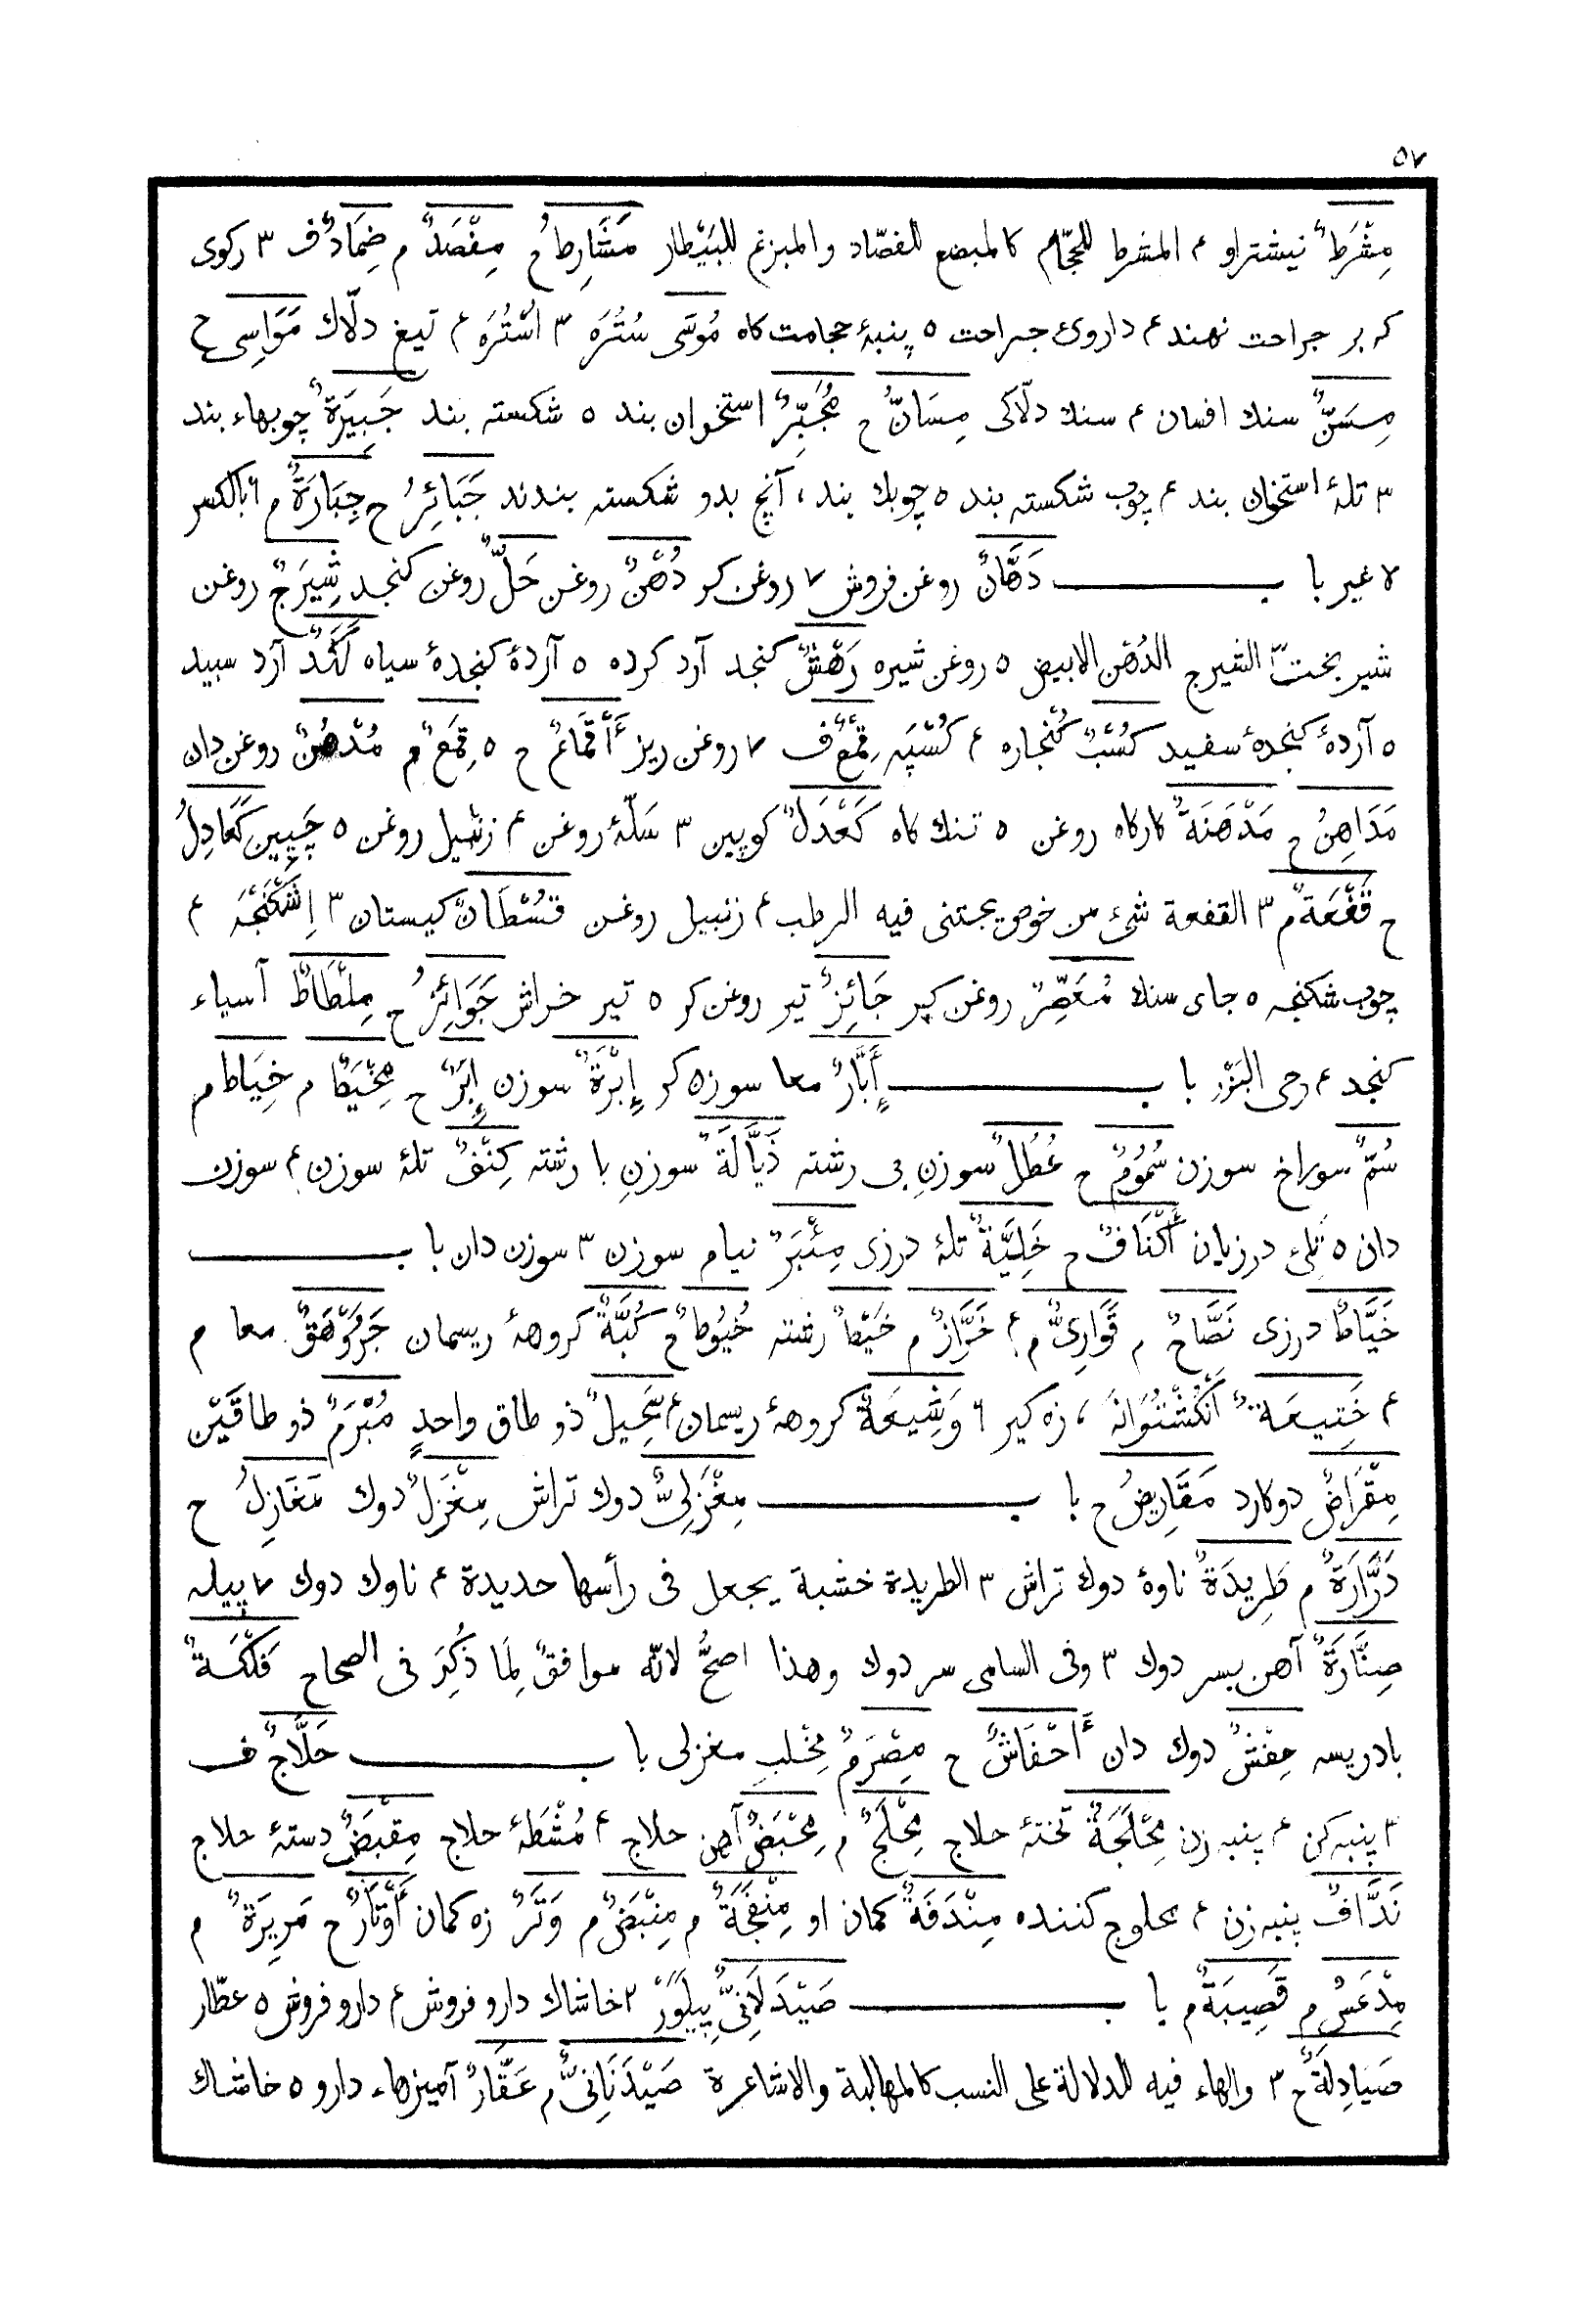 ٥٧
مِشْرَطٌ نیشتراو ۴ المشرط للحجّام کالمبضع للفصّاد والمبزغ للبَیْطار مَشَارِطُ ح مِفْصَدٌ م ضِمَادٌ ف ٣ رکوی
که بر جراحت نهند ۴ داروئ جراحت ٥ پنبۀ حجامت کاه مُوسَی سُتُرَه ٣ اُسْتُرَه ۴ تیغ دلّاك مَوَاسِی ح
مِسَنٌّ سنك افسان ۴ سنك دلّاکی مِسَانٌّ ح مُجَبِّرٌ استخوان بند ٥ شکسته بند جَبِیَرَةٌ چوبهاء بند
٣ تلۀ استخان بند ۴ چوب شکسته بند ٥ چوبك بند ، آنچ بدو شکسته بندند جَبَائِرُ ح جِبَارَةٌ م ٦ بالکسر
لا غیر باب دَهَّانٌ روغن فروش ٧ روغن کر دُهْنٌ روغن حَلٌّ روغن کنجد شِیَرَجٌ روغن
شیر بخت الشیرج الدُهْن الابیض ٥ روغن شیره رَهْشٌ کنجد آرد کرده ٥ آردۀ کنجدۀ سیاه آرد سبید
٥ آردۀ کنجدۀ سفید کُسْبٌ کُنْجاره ۴ کُسْپَه قِمْعٌ ف ٧ روغن ریز أَقْمَاعٌ ح ٥ قِمَعٌ م مُدْهُنٌ روغن دان
مَدَاهِنُ ح مَدْهَنَةٌ کارکاه روغن ٥ تنك کاه کَعْدَلٌ کوپین ٣ سَلّۀ روغن ۴ زنبیل روغن ٥ چَپِین کَعَادِلُ
ح قَفْعَةٌ م ٣ القفعة شیء من خوص یجتنی فیه الرطب ۴ زنبیل روغن قُسْطَانٌ کیستان ٣ اِشْکَنْجَه ۴
چوب شکنجه ٥ جای سنك مُعَصِّرٌ روغن کیر جَائِزٌ تیر روغن کر ٥ تیر خراش جَوَائِزُ ح مِلْطَاطٌ آسیاء
کنجد ۴ رحی البَزْر باب أَبَّارٌ معا سوزه کر إِبْرَةٌ سوزن إِبَرٌ ح مِخْیَطٌ م خِیَاط م
سُمٌّ سوراخ سوزن سُمُومٌ ح عُطُلٌ سوزنِ بی رشته ذَیَّالَةٌ سوزنِ با رشته کِنْفٌ تلۀ سوزن ۴ سوزن
دان ٥ تلیء درزیان أَکْنَافٌ ح خَلِیَّةٌ تلۀ درزی مِئْبَرٌ نیام سوزن ٣ سوزن دان باب
خَیَّاطٌ درزی نَصَّاحٌ م قَوَارِیٌّ م ۴ خَرَّازٌ م خَیْطٌ رشته خُیُوطٌ ح کُبَّةٌ کروهۀ ریسمان جَرَوْهَقٌ معا م
۴ خَتِیعَةٌ اَنْکُشْتُوَانَه ، زه کیر ٦ وَشِیعَةٌ کروهۀ ریسمان ۴ سَحِیلٌ ذو طاق واحدٍ مُبْرَمٌ ذو طاقَیْن
مِقْرَاضٌ دوکارد مَقَارِیضُ ح باب مِغْزَلِیٌّ دوك تراش مِغْزَلٌ دوك مَغَازِلُ ح
دَرَّارَةٌ م طَرِیدَةٌ ناوۀ دوك تراش ٣ الطریدة خشبة یجعل فی رأسها حدیدة ۴ ناوك دوك ٧ پیله
صِنَّارَةٌ آهن بسر دوك ٣ وفی السامی سر دوك وهذا اصحُّ لانّه موافقٌ لِمَا ذُکِرَ فی الصحاح فَلْکَةٌ
بادریسه حِفْشٌ دوك دان أَحْفَاشٌ ح مِصْرَمٌ مِخْلبِ مغزلی باب حَلَّاجٌ ف
٣ پنبه کن ۴ پنبه زن مِحْلَجَةٌ تختۀ حلاج مِحْلَجٌ م مِحْبَضٌ آهن حلاج ۴ مُشْطَۀ حلاج مِقْبَضٌ دستۀ حلاج
نَدَّافٌ پنبه زن ۴ محلوج کننده مِنْدَفَةٌ کمان او مِنْفَجَةٌ م مِنْبَضٌ م وَتَرٌ زه کمان أَوْتَارٌ ح مَرِیَرَةٌ م
مِدْعَسٌ م قَصِیبَةٌ م باب صَیْدَلَانِیٌّ پِیلَوَرْ ٢ خاشاك دارو فروش ۴ دارو فروش ٥ عطّار
صَیَادِلَةٌ ح ٣ والهاء فیه للدلالة علی النسب کالمهالبة والاشاعرة صَیْدَنَانِیٌّ م عَقَّارٌ آمیزهاء دارو ٥ خاشاك